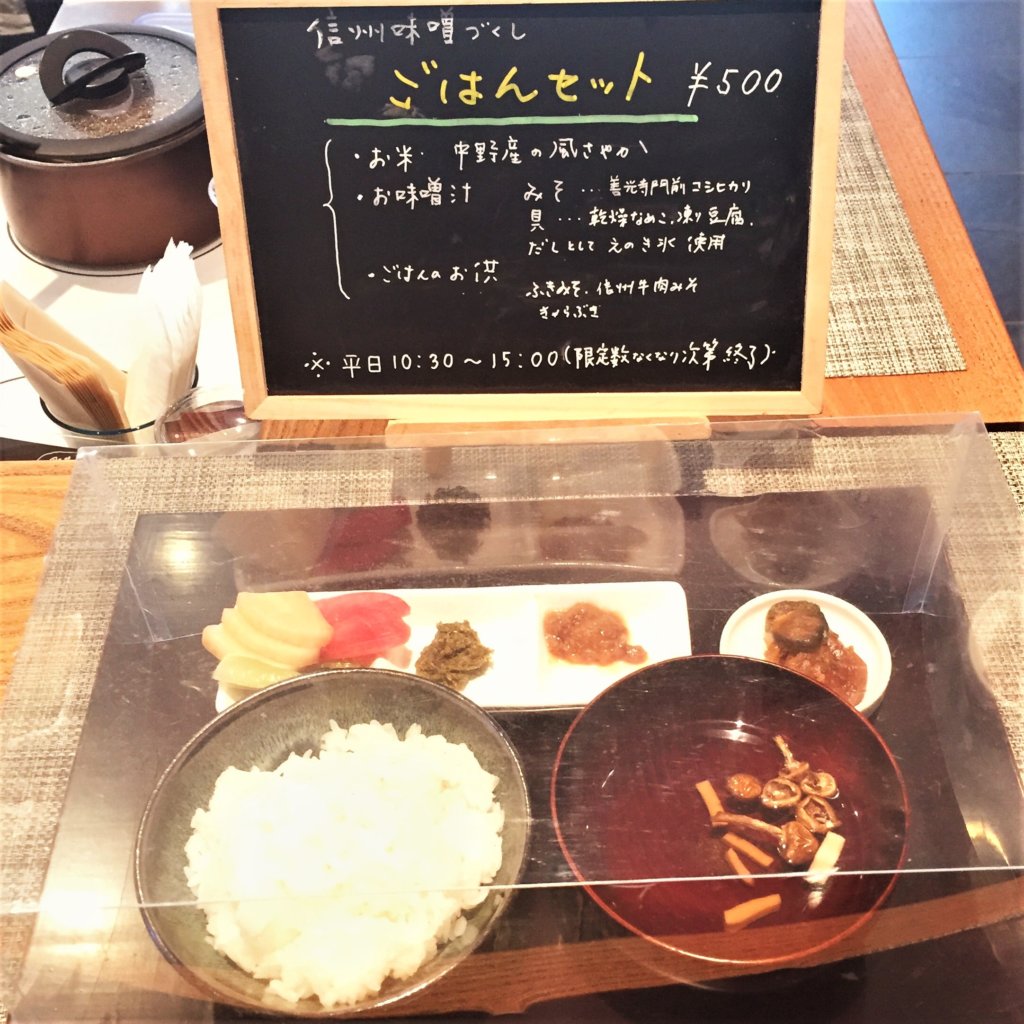 信州味噌づくし
ごはんセット ¥500
・お米・ 中野産の風さやか
・お味噌汁 みそ…善光寺門前コシヒカリ
具…乾燥なめこ、凍り豆腐、
だしとして えのき氷 使用
・ごはんのお供 ふきみそ、信州牛肉みそ
きゃらぶき
※平日10:30～15:00(限定数なくなり次第終了)